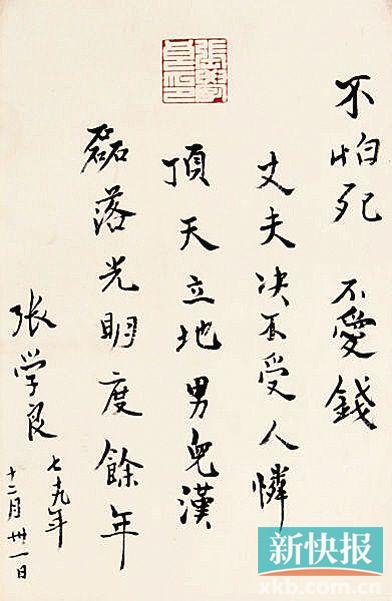 張學良印
不怕死 不愛錢
丈夫决不受人憐
頂天立地男兒漢
磊落光明度餘年
張学良
七九年
十二月卅一日
新快报
xkb.com.cn